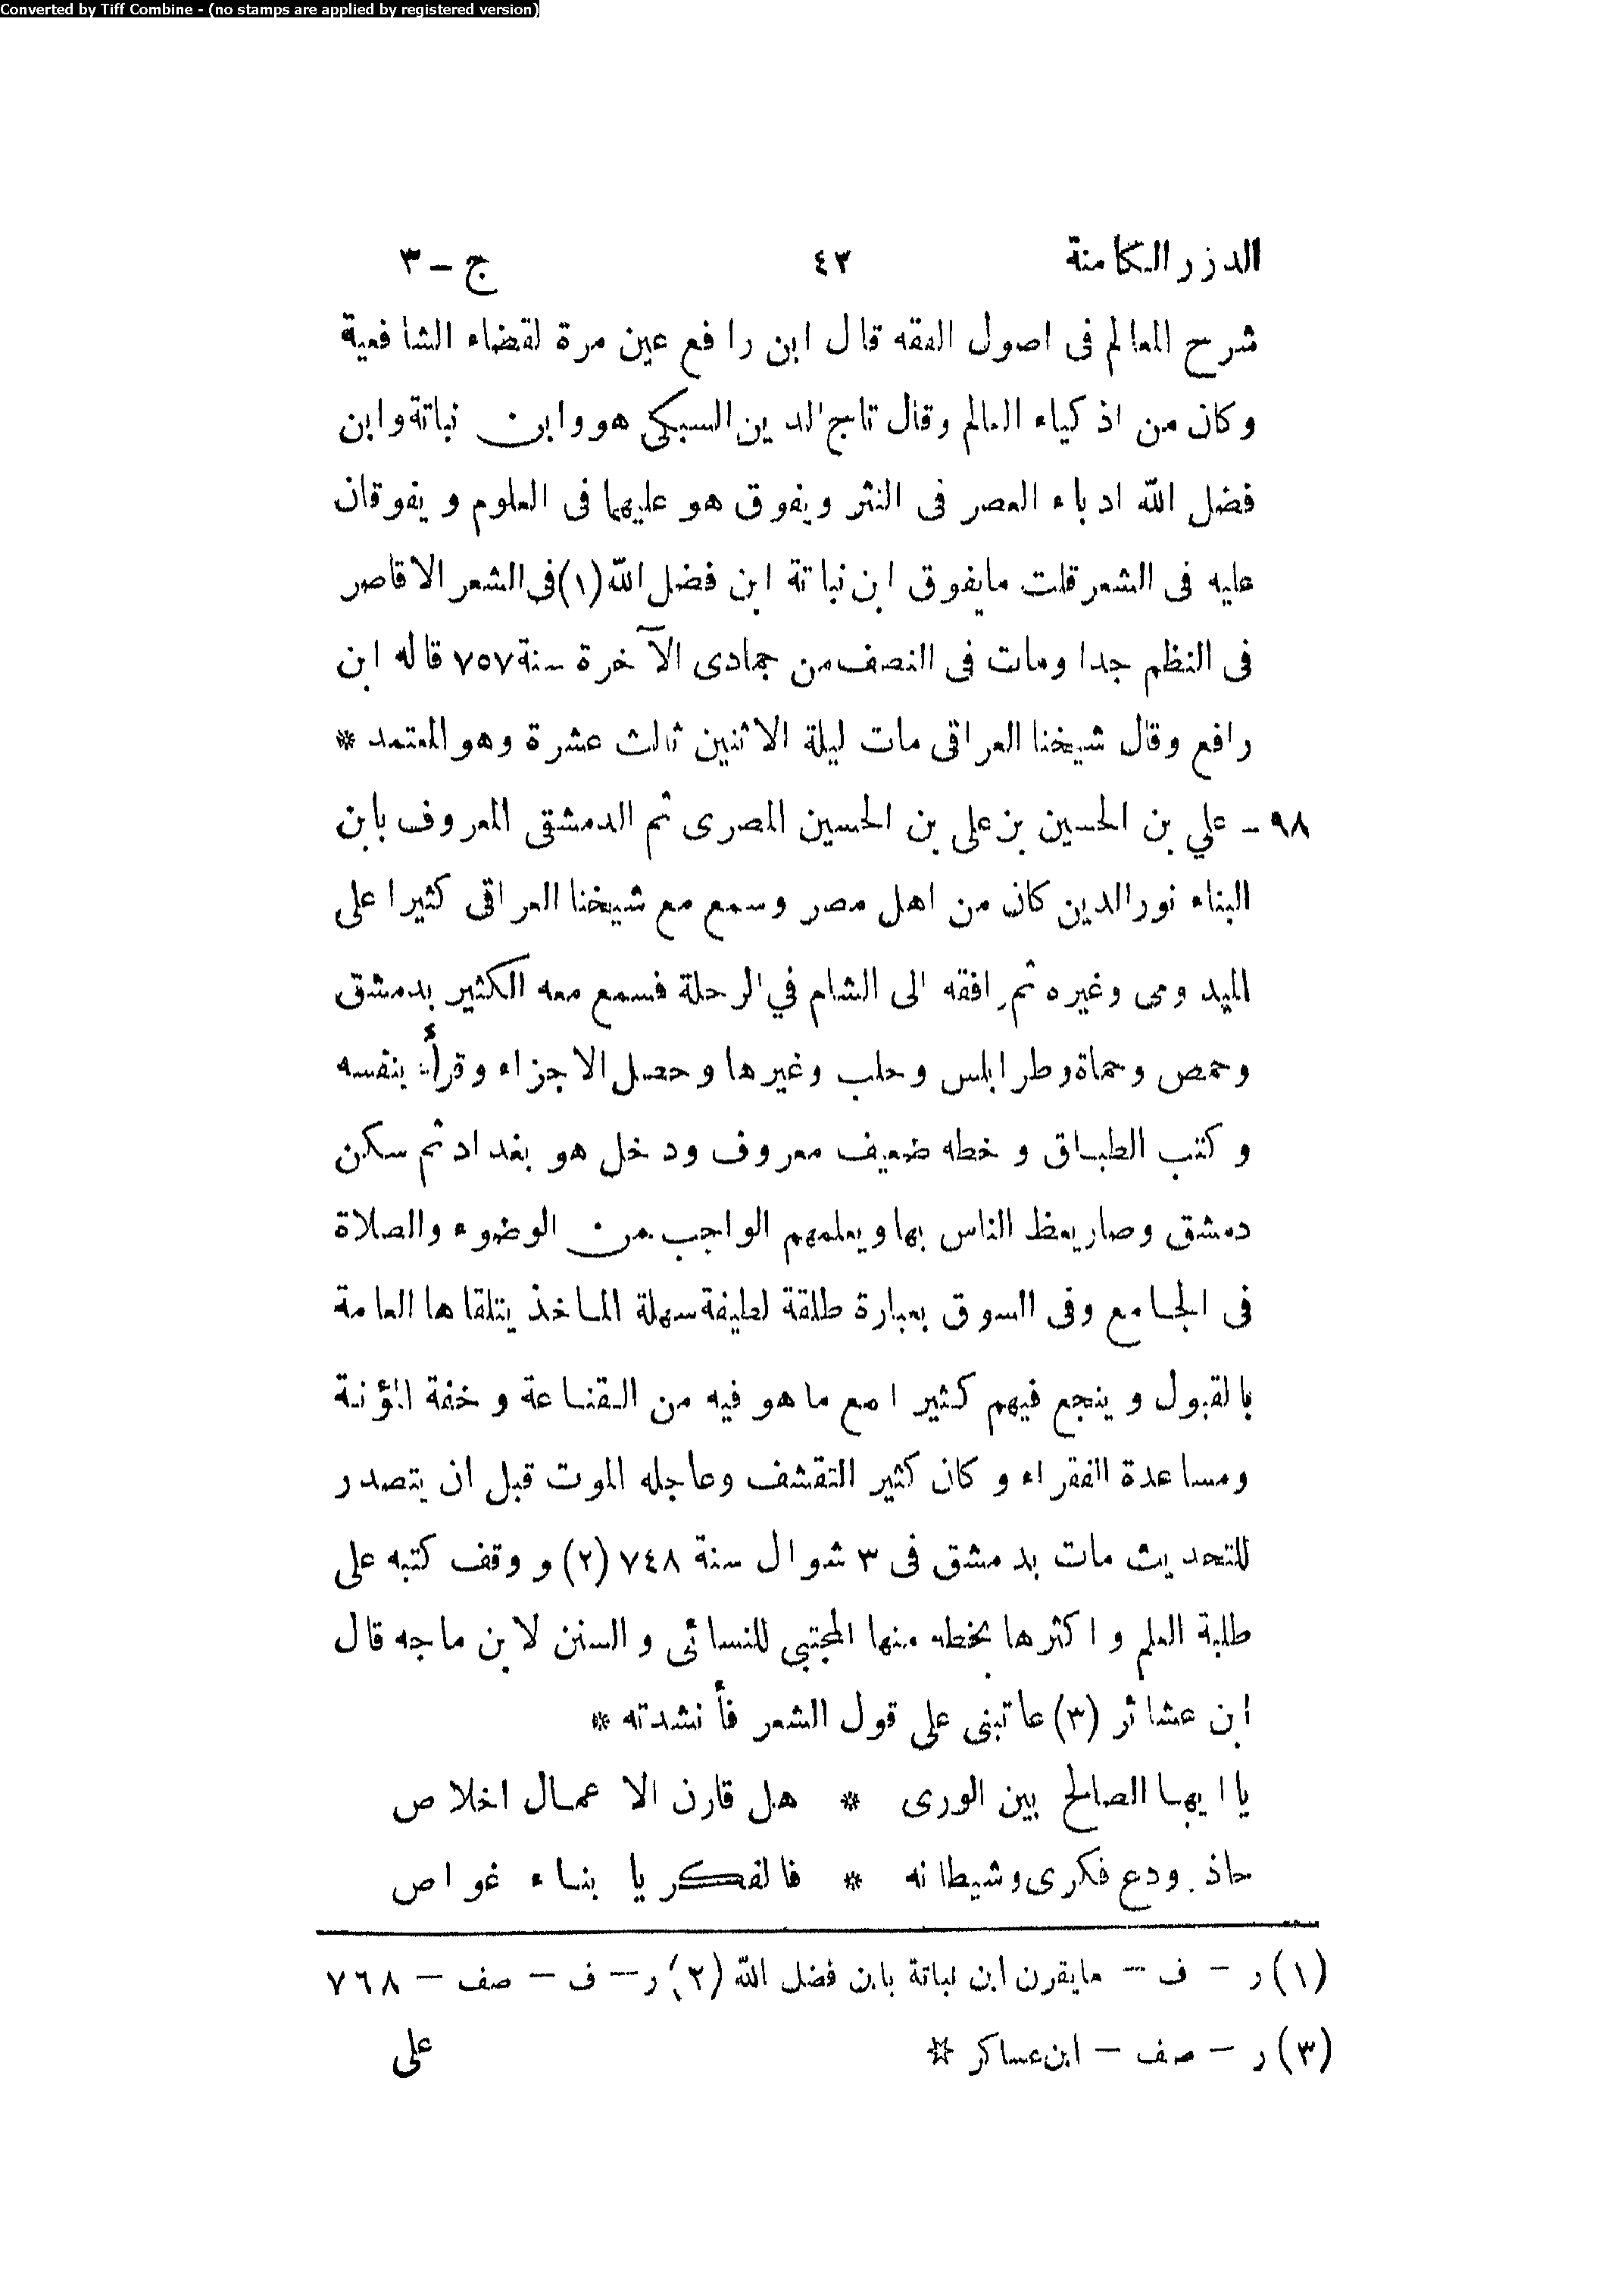 Converted by Tiff Combine - (no stamps are applied by registered version)
الدرر الكامنة ٤٣ ج - ٣
شرح المعالم فى اصول الفقه قال ابن رافع عين مرة لقضاء الشافعية
وكان من اذكياء العالم وقال تاج الدين السبكى هو وابن نباتة وابن
فضل الله ادباء العصر فى النثر ويفوق هو عليهما فى العلوم ويفوقان
عليه فى الشعر قلت مايفوق ابن نباتة ابن فضل الله (١) فى الشعر الا قاصر
فى النظم جدا ومات فى النصف من جمادى الآخرة سنة ٧٥٧ قاله ابن
رافع وقال شيخنا العراقى مات ليلة الاثنين ثالث عشرة وهو المعتمد *
٩٨ - علي بن الحسين بن على بن الحسين المصرى ثم الدمشقى المعروف بابن
البناء نور الدين كان من اهل مصر وسمع مع شيخنا العراقى كثيرا على
الميدومى وغيره ثم رافقه الى الشام في الرحلة فسمع معه الكثير بدمشق
وحمص وحماة وطرابلس وحلب وغيرها وحصل الاجزاء وقرأ بنفسه
وكتب الطباق وخطه ضعيف معروف ودخل هو بغداد ثم سكن
دمشق وصار يعظ الناس بها ويعلمهم الواجب من الوضوء والصلاة
فى الجامع وفى السوق بعبارة طلقة لطيفة سهلة الماخذ يتلقاها العامة
بالقبول وينجع فيهم كثيرا مع ما هو فيه من القناعة وخفة المؤنة
ومساعدة الفقراء وكان كثير التقشف وعاجله الموت قبل ان يتصدر
للتحديث مات بدمشق فى ٣ شوال سنة ٧٤٨ (٢) ووقف كتبه على
طلبة العلم واكثرها بخطه منها المجتبي للنسائى والسنن لابن ماجه قال
ابن عشائر (٣) عاتبنى على قول الشعر فأنشدته *
يا ايها الصالح بين الورى * هل قارن الاعمال اخلاص
حاذر ودع فكرى وشيطانه * فالفكر يا بناء غواص
(١) ر - ف - مايقرن ابن نباتة بابن فضل الله (٢) ر - ف - صف - ٧٦٨
(٣) ر - صف - ابن عساكر * على